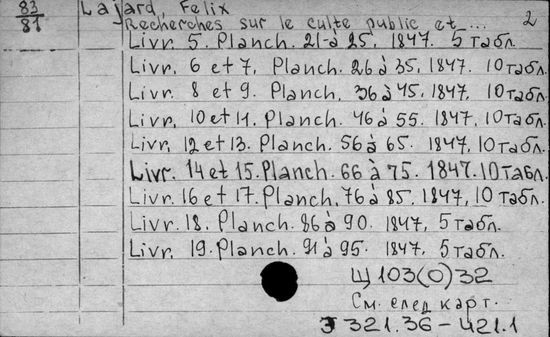 83
81
Lajard, Felix
2
Recherches sur le culte public et ...
Livr. 5. Planch. 21-à 25, 1847. 5 табл.
Livr. 6 et 7. Planch. 26 à 35, 1847. 10 табл.
Livr. 8 et 9. Planch. 36 à 45, 1847. 10 табл.
Livr. 10 et 11. Planch. 46 à 55. 1847. 10 табл.
Livr. 12 et 13. Planch. 56 à 65. 1847, 10 табл.
Livr. 14 et 15. Planch. 66 à 75. 1847. 10 табл.
Livr. 16 et 17. Planch. 76 à 85. 1847, 10 табл.
Livr. 18. Planch. 86 à 90. 1847, 5 табл.
Livr. 19. Planch. 91 à 95. 1847, 5 табл.
Щ 103(0)32
См. след карт.
Э 321.36-421.1